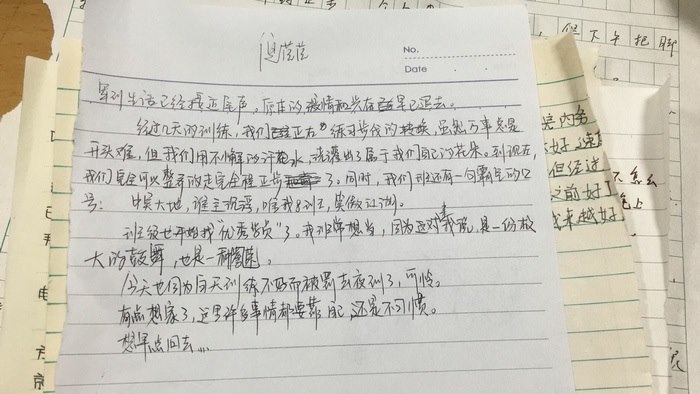 No.
Date
军训生活已经接近尾声,原本的激情和兴奋早已退去。
经过几天的训练,我们正在练习步伐的转换,虽然万事总是
开头难,但我们用不懈的汗水,浇灌出了属于我们自己的花朵。到现在,
我们完全可以整齐的走完全程正步了。同时,我们班还有一句霸气的口
号: 大地,谁主沉浮,唯我8班,
班级也开始找"优秀学员"了。我非常想当,因为这对我说,是一份极
大的鼓舞,也是一种
今天也因为白天训练不好而被罚去夜训了,可怜。
有点想家了,这里许多事情都要靠自己,还是不习惯。
想早点回去....
是内务
好
但经过
之前好
越来越好
不怎么
但下午把脚